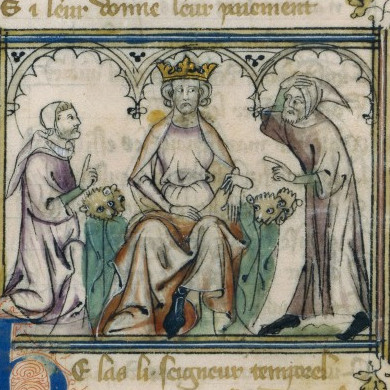 S i leur donne leur paiement
H E las li seigneur temporel